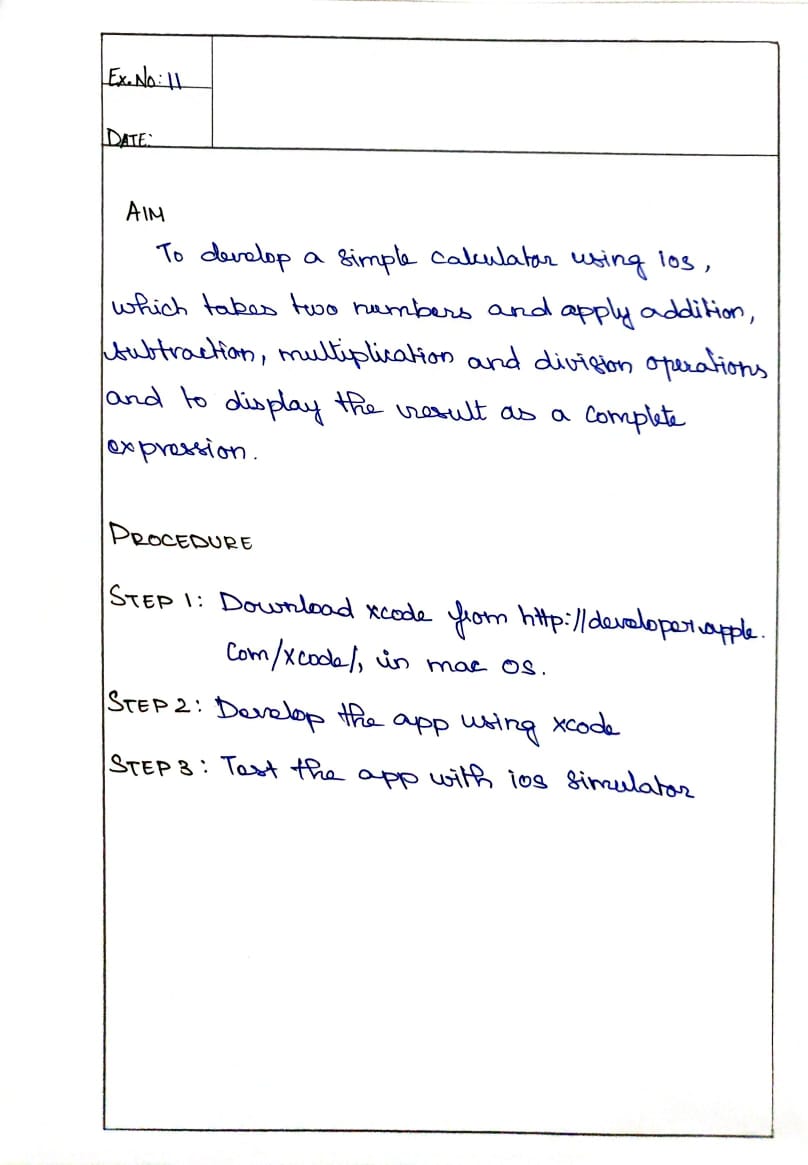 Ex.No: 11
DATE:
AIM
To develop a simple calculator using ios,
which takes two numbers and apply addition,
subtraction, multiplication and division operations
and to display the result as a complete
expression.
PROCEDURE
STEP 1: Download xcode from http://developer.apple.
com/xcode/, in mac OS.
STEP 2: Develop the app using xcode
STEP 3: Test the app with ios simulator